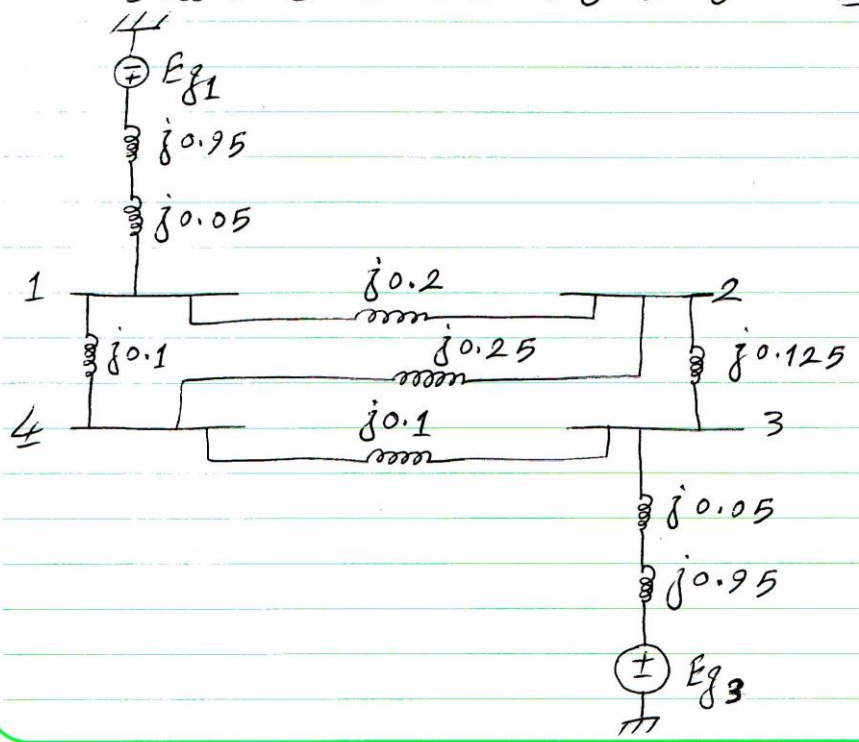 Eg1
j0.95
j0.05
1
j0.2
2
j0.1
j0.25
j0.125
4
j0.1
3
j0.05
j0.95
Eg3